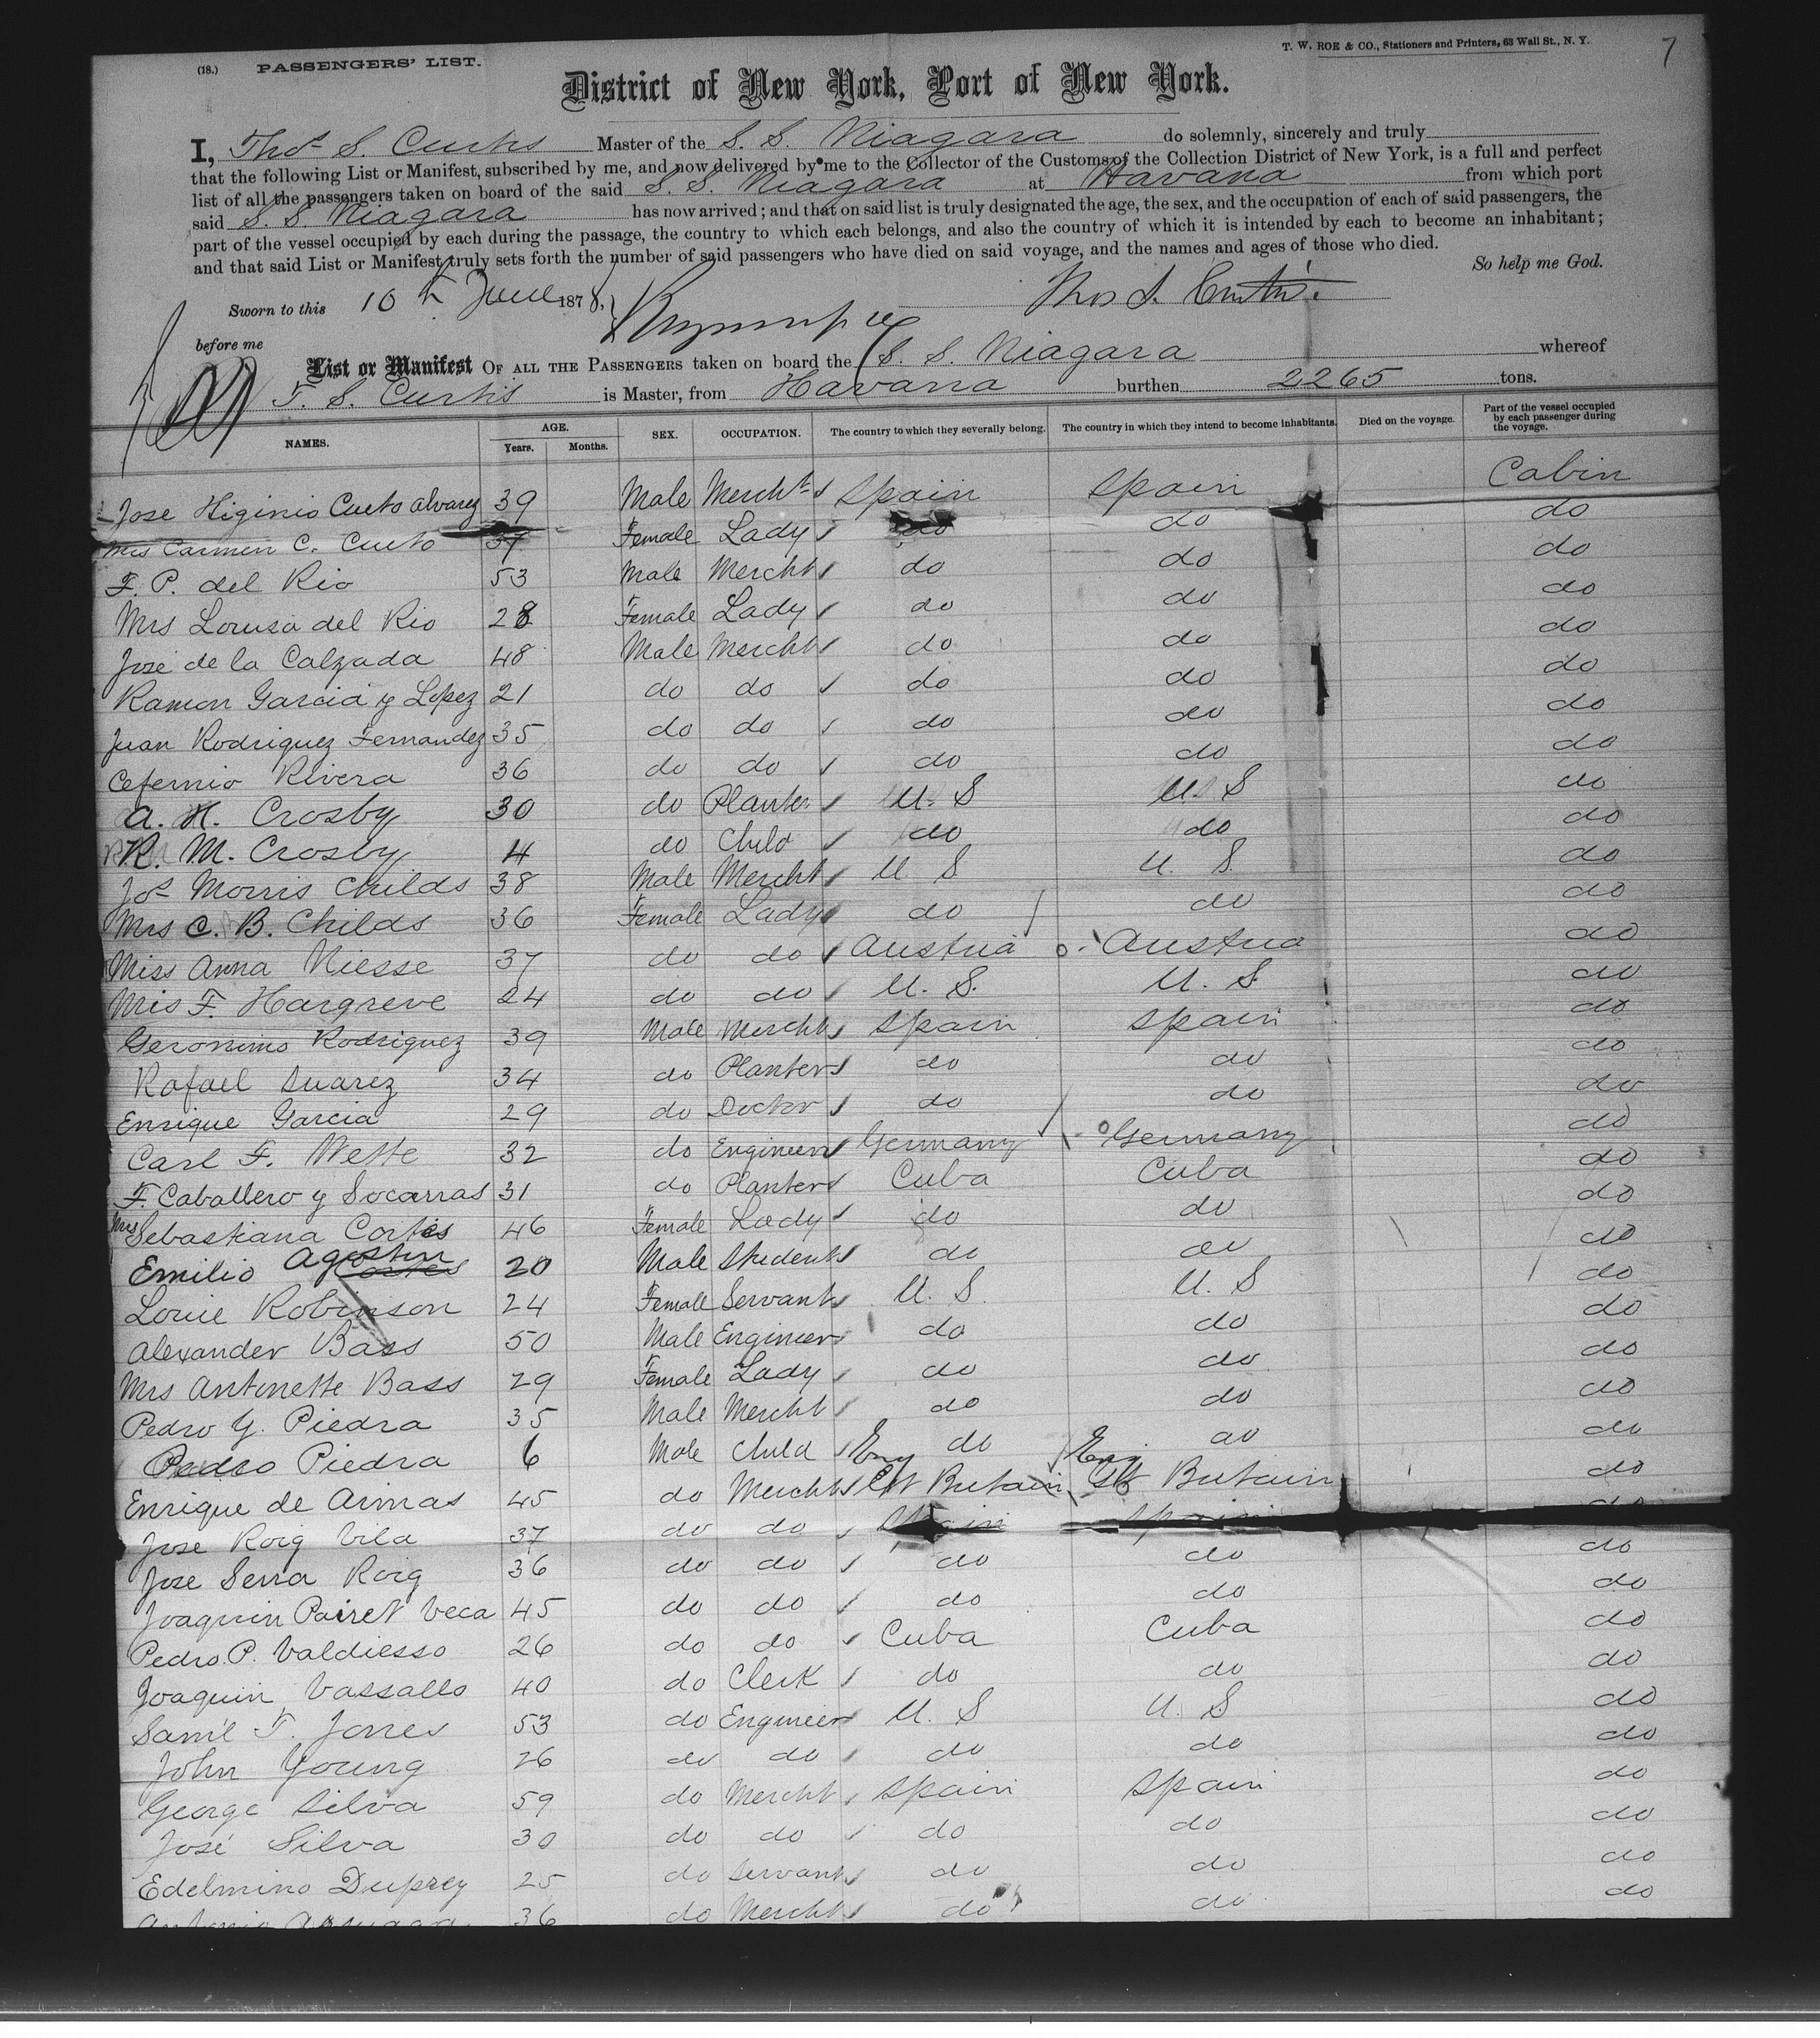 (18.) PASSENGERS' LIST. T. W. ROE & CO., Stationers and Printers, 63 Wall St., N. Y. 7
District of New York, Port of New York.
I, Thos S. Curtis Master of the S. S. Niagara do solemnly, sincerely and truly
that the following List or Manifest, subscribed by me, and now delivered by me to the Collector of the Customs of the Collection District of New York, is a full and perfect
list of all the passengers taken on board of the said S. S. Niagara at Havana from which port
said S. S. Niagara has now arrived; and that on said list is truly designated the age, the sex, and the occupation of each of said passengers, the
part of the vessel occupied by each during the passage, the country to which each belongs, and also the country of which it is intended by each to become an inhabitant;
and that said List or Manifest truly sets forth the number of said passengers who have died on said voyage, and the names and ages of those who died.
So help me God.
Sworn to this 10th June 1878. Thos S. Curtis.
before me
List or Manifest OF ALL THE PASSENGERS taken on board the S. S. Niagara whereof
T. S. Curtis is Master, from Havana burthen 2265 tons.
NAMES. AGE. Years. Months. SEX. OCCUPATION. The country to which they severally belong. The country in which they intend to become inhabitants. Died on the voyage. Part of the vessel occupied by each passenger during the voyage.
Jose Higinio Cueto Alvarez 39 Male Mercht Spain Spain Cabin
Mrs Carmen C. Cueto 37 Female Lady do do do
F. P. del Rio 53 Male Mercht do do do
Mrs Lousa del Rio 28 Female Lady do do do
José de la Calzada 48 Male Mercht do do do
Ramon Garcia y Lopez 21 do do do do do
Juan Rodriguez Fernandez 35 do do do do do
Cefernio Rivera 36 do do do do do
A. H. Crosby 30 do Planter U. S U. S do
R. M. Crosby 4 do Child do do do
Jos Morris Childs 38 Male Mercht U. S U. S. do
Mrs C. B. Childs 36 Female Lady do do do
Miss Anna Niesse 37 do do Austria Austria do
Mrs F. Hargreve 24 do do U. S. U. S. do
Geronimo Rodriguez 39 Male Mercht Spain Spain do
Rafael Suarez 34 do Planter do do do
Enrique Garcia 29 do Doctor do do do
Carl F. Wette 32 do Engineer Germany Germany do
F. Caballero y Socarras 31 do Planter Cuba Cuba do
Mrs Sebastiana Cortes 46 Female Lady do do do
Emilio Agostin Cortes 20 Male Student do do do
Louie Robinson 24 Female Servant U. S. U. S do
Alexander Bass 50 Male Engineer do do do
Mrs Antonette Bass 29 Female Lady do do do
Pedro Y. Piedra 35 Male Mercht do do do
Pedro Piedra 6 Male Child do do do
Enrique de Armas 45 do Mercht Eng Gt Britain Eng Gt Britain do
Jose Roig Vila 37 do do Spain Spain do
Jose Serra Roig 36 do do do do do
Joaquin Pairet Veca 45 do do do do do
Pedro P. Valdiesso 26 do do Cuba Cuba do
Joaquin Vassallo 40 do Clerk do do do
Saml F. Jones 53 do Engineer U. S U. S do
John Young 26 do do do do do
George Silva 59 do Mercht Spain Spain do
José Silva 30 do do do do do
Edelmino Duprey 25 do Servant do do do
Antonio 36 do Mercht do do do